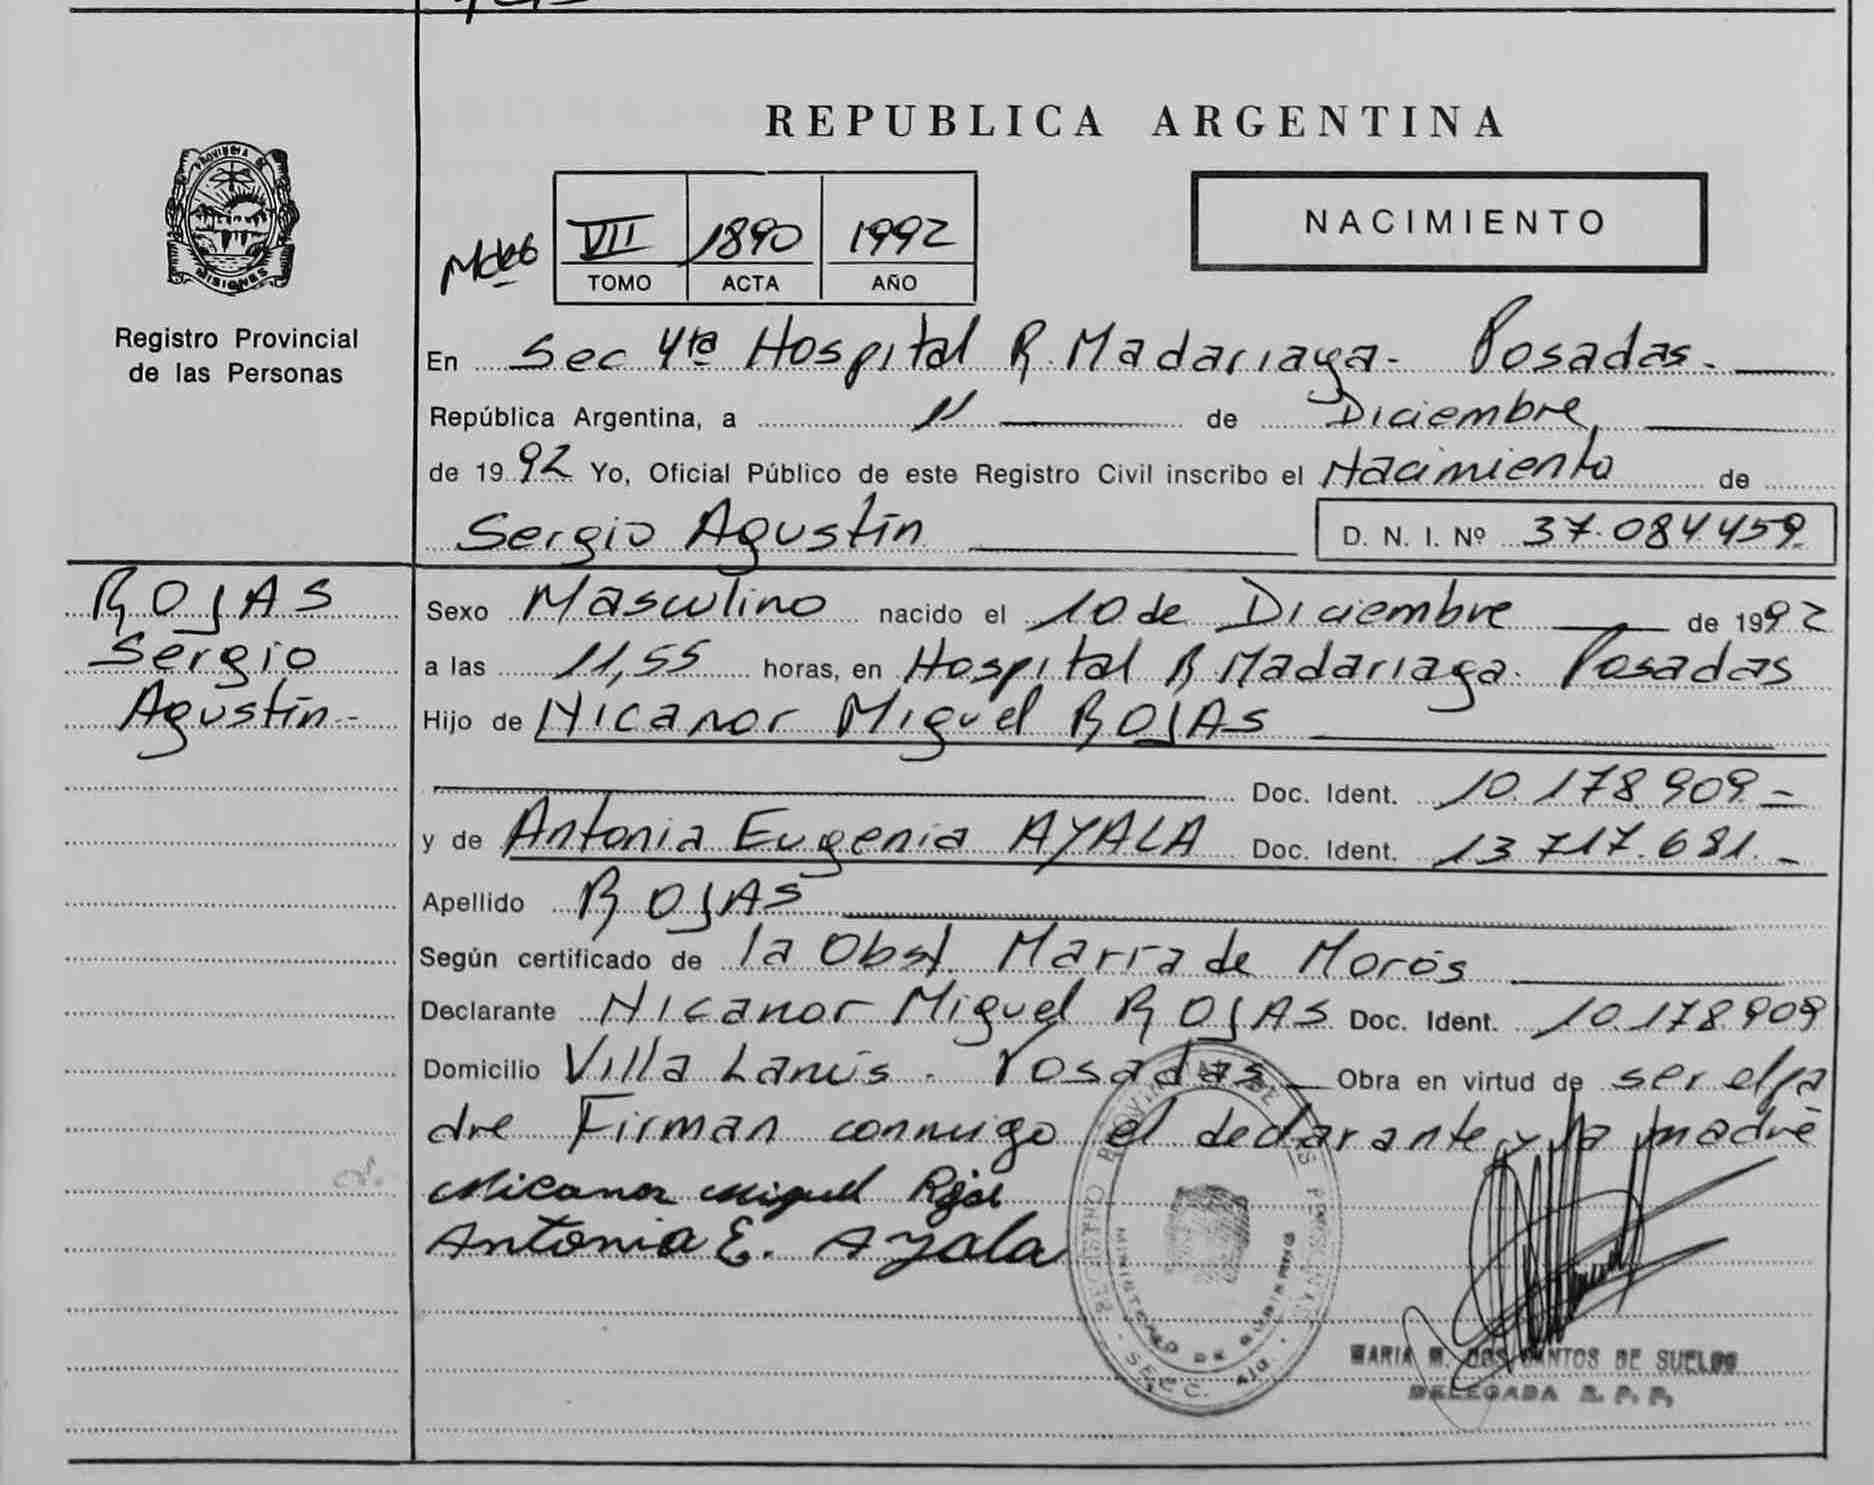 REPUBLICA ARGENTINA
PROVINCIA DE
MISIONES
Registro Provincial
de las Personas
VII 1890 1992
TOMO ACTA AÑO
NACIMIENTO
En Sec 4ta Hospital R. Madariaga - Posadas.
República Argentina, a 11 de Diciembre
de 1992 Yo, Oficial Público de este Registro Civil inscribo el Nacimiento de
Sergio Agustín D. N. I. Nº 37.084.459
ROJAS
Sergio
Agustín -
Sexo Masculino nacido el 10 de Diciembre de 1992
a las 11,55 horas, en Hospital R. Madariaga. Posadas
Hijo de Nicanor Miguel ROJAS
Doc. Ident. 10.178.909.-
y de Antonia Eugenia AYALA Doc. Ident. 13.717.681.-
Apellido ROJAS
Según certificado de la Obst. María de Morós
Declarante Nicanor Miguel ROJAS Doc. Ident. 10.178.909
Domicilio Villa Lanús - Posadas Obra en virtud de ser el pa
dre Firman conmigo el declarante y la madre
Nicanor Miguel Rojas
Antonia E. Ayala
REGISTRO PROVINCIAL DE LAS PERSONAS
MINISTERIO DE GOBIERNO
SECC. 4ta.
MARIA M. DOS SANTOS DE SUELDO
DELEGADA R. P. P.